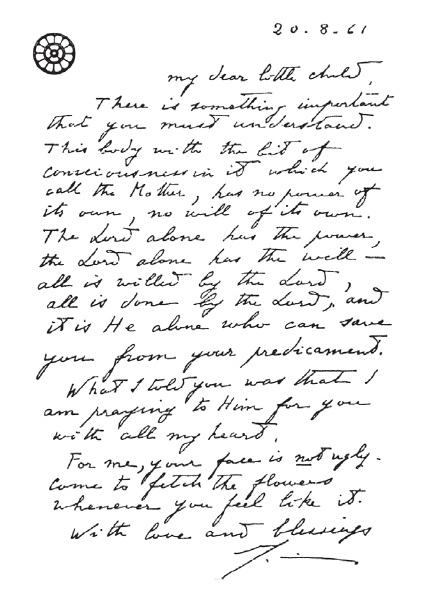 20.8.61
my dear little child,
There is something important
that you must understand.
This body with the bit of
consciousness in it which you
call the Mother, has no power of
its own, no will of its own.
The Lord alone has the power,
the Lord alone has the will —
all is willed by the Lord,
all is done by the Lord, and
it is He alone who can save
you from your predicament.
What I told you was that I
am praying to Him for you
with all my heart.
For me, your face is not ugly.
Come to fetch the flowers
whenever you feel like it.
With love and blessings